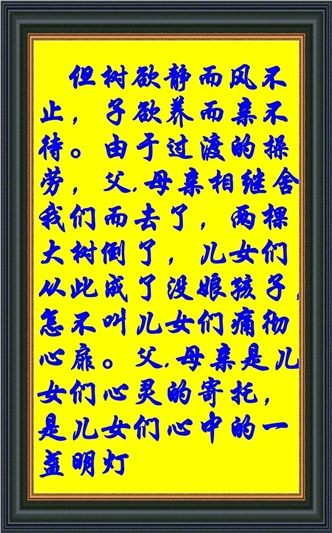 但树欲静而风不
止，子欲养而亲不
待。由于过渡的操
劳，父.母亲相继舍
我们而去了，两棵
大树倒了，儿女们
从此成了没娘孩子，
怎不叫儿女们痛彻
心扉。父.母亲是儿
女们心灵的寄托，
是儿女们心中的一
盏明灯